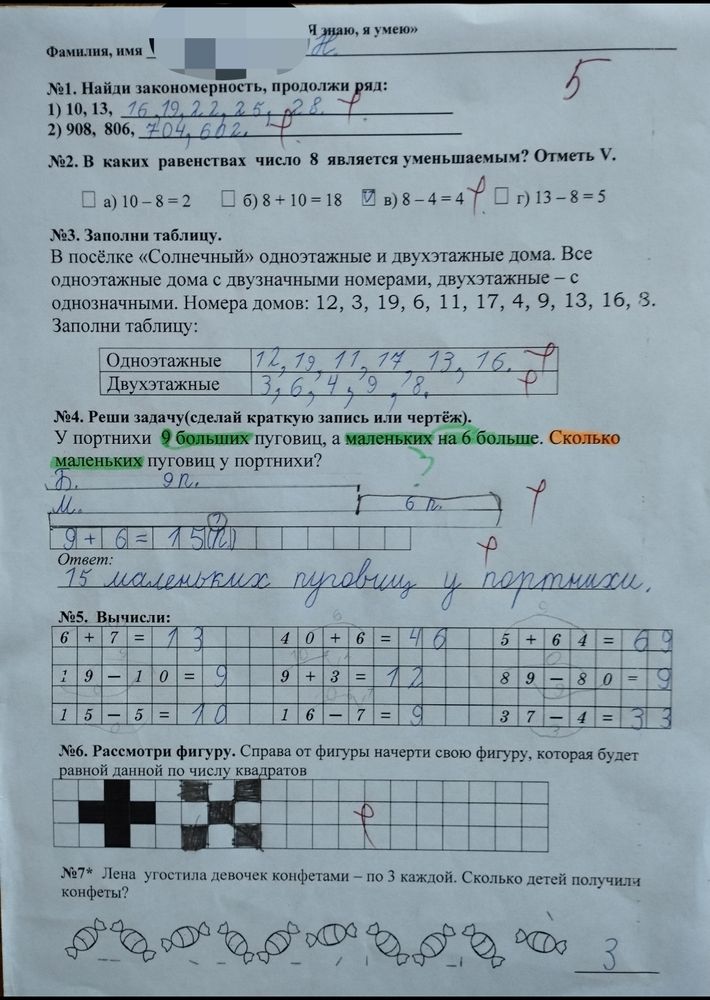 Я знаю, я умею»
Фамилия, имя Н.
5
№1. Найди закономерность, продолжи ряд:
1) 10, 13, 16, 19, 22, 25, 28.
2) 908, 806, 704, 602.
№2. В каких равенствах число 8 является уменьшаемым? Отметь V.
а) 10 – 8 = 2 б) 8 + 10 = 18 V в) 8 – 4 = 4 г) 13 – 8 = 5
№3. Заполни таблицу.
В посёлке «Солнечный» одноэтажные и двухэтажные дома. Все
одноэтажные дома с двузначными номерами, двухэтажные – с
однозначными. Номера домов: 12, 3, 19, 6, 11, 17, 4, 9, 13, 16, 8.
Заполни таблицу:
Одноэтажные 12, 19, 11, 17, 13, 16.
Двухэтажные 3, 6, 4, 9, 8.
№4. Реши задачу(сделай краткую запись или чертёж).
У портнихи 9 больших пуговиц, а маленьких на 6 больше. Сколько
маленьких пуговиц у портнихи?
?
Б. 9 п.
М. 6 п.
?
9 + 6 = 15 (п.)
Ответ:
15 маленьких пуговиц у портнихи.
№5. Вычисли:
6 + 7 = 13 40 + 6 = 46 5 + 64 = 69
19 – 10 = 9 9 + 3 = 12 89 – 80 = 9
15 – 5 = 10 16 – 7 = 9 37 – 4 = 33
№6. Рассмотри фигуру. Справа от фигуры начерти свою фигуру, которая будет
равной данной по числу квадратов
№7* Лена угостила девочек конфетами – по 3 каждой. Сколько детей получили
конфеты?
3